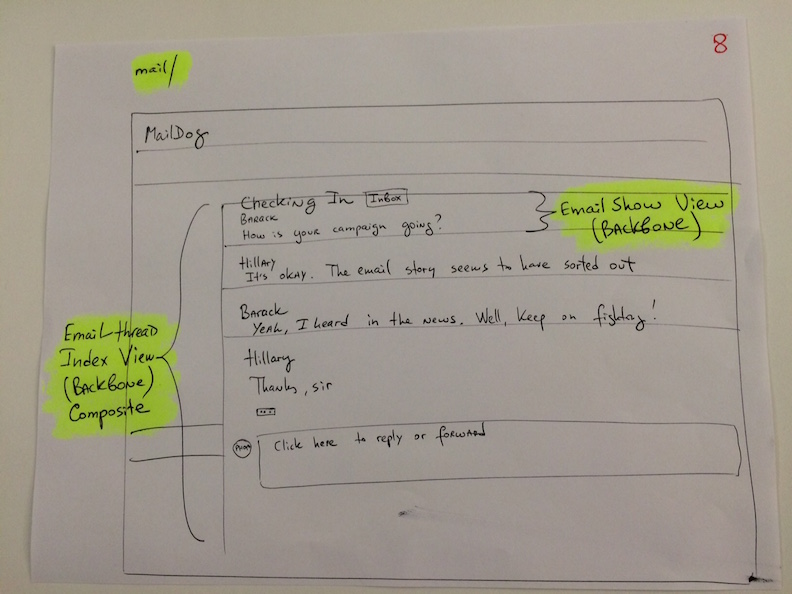 8
mail/
MailDog
Checking In Inbox
Barack
How is your campaign going?
Email Show View
(Backbone)
Hillary
It's okay. The email story seems to have sorted out
Barack
Yeah, I heard in the news. Well, keep on fighting!
Email thread
Index View
(Backbone)
Composite
Hillary
Thanks, sir
Click here to reply or forward